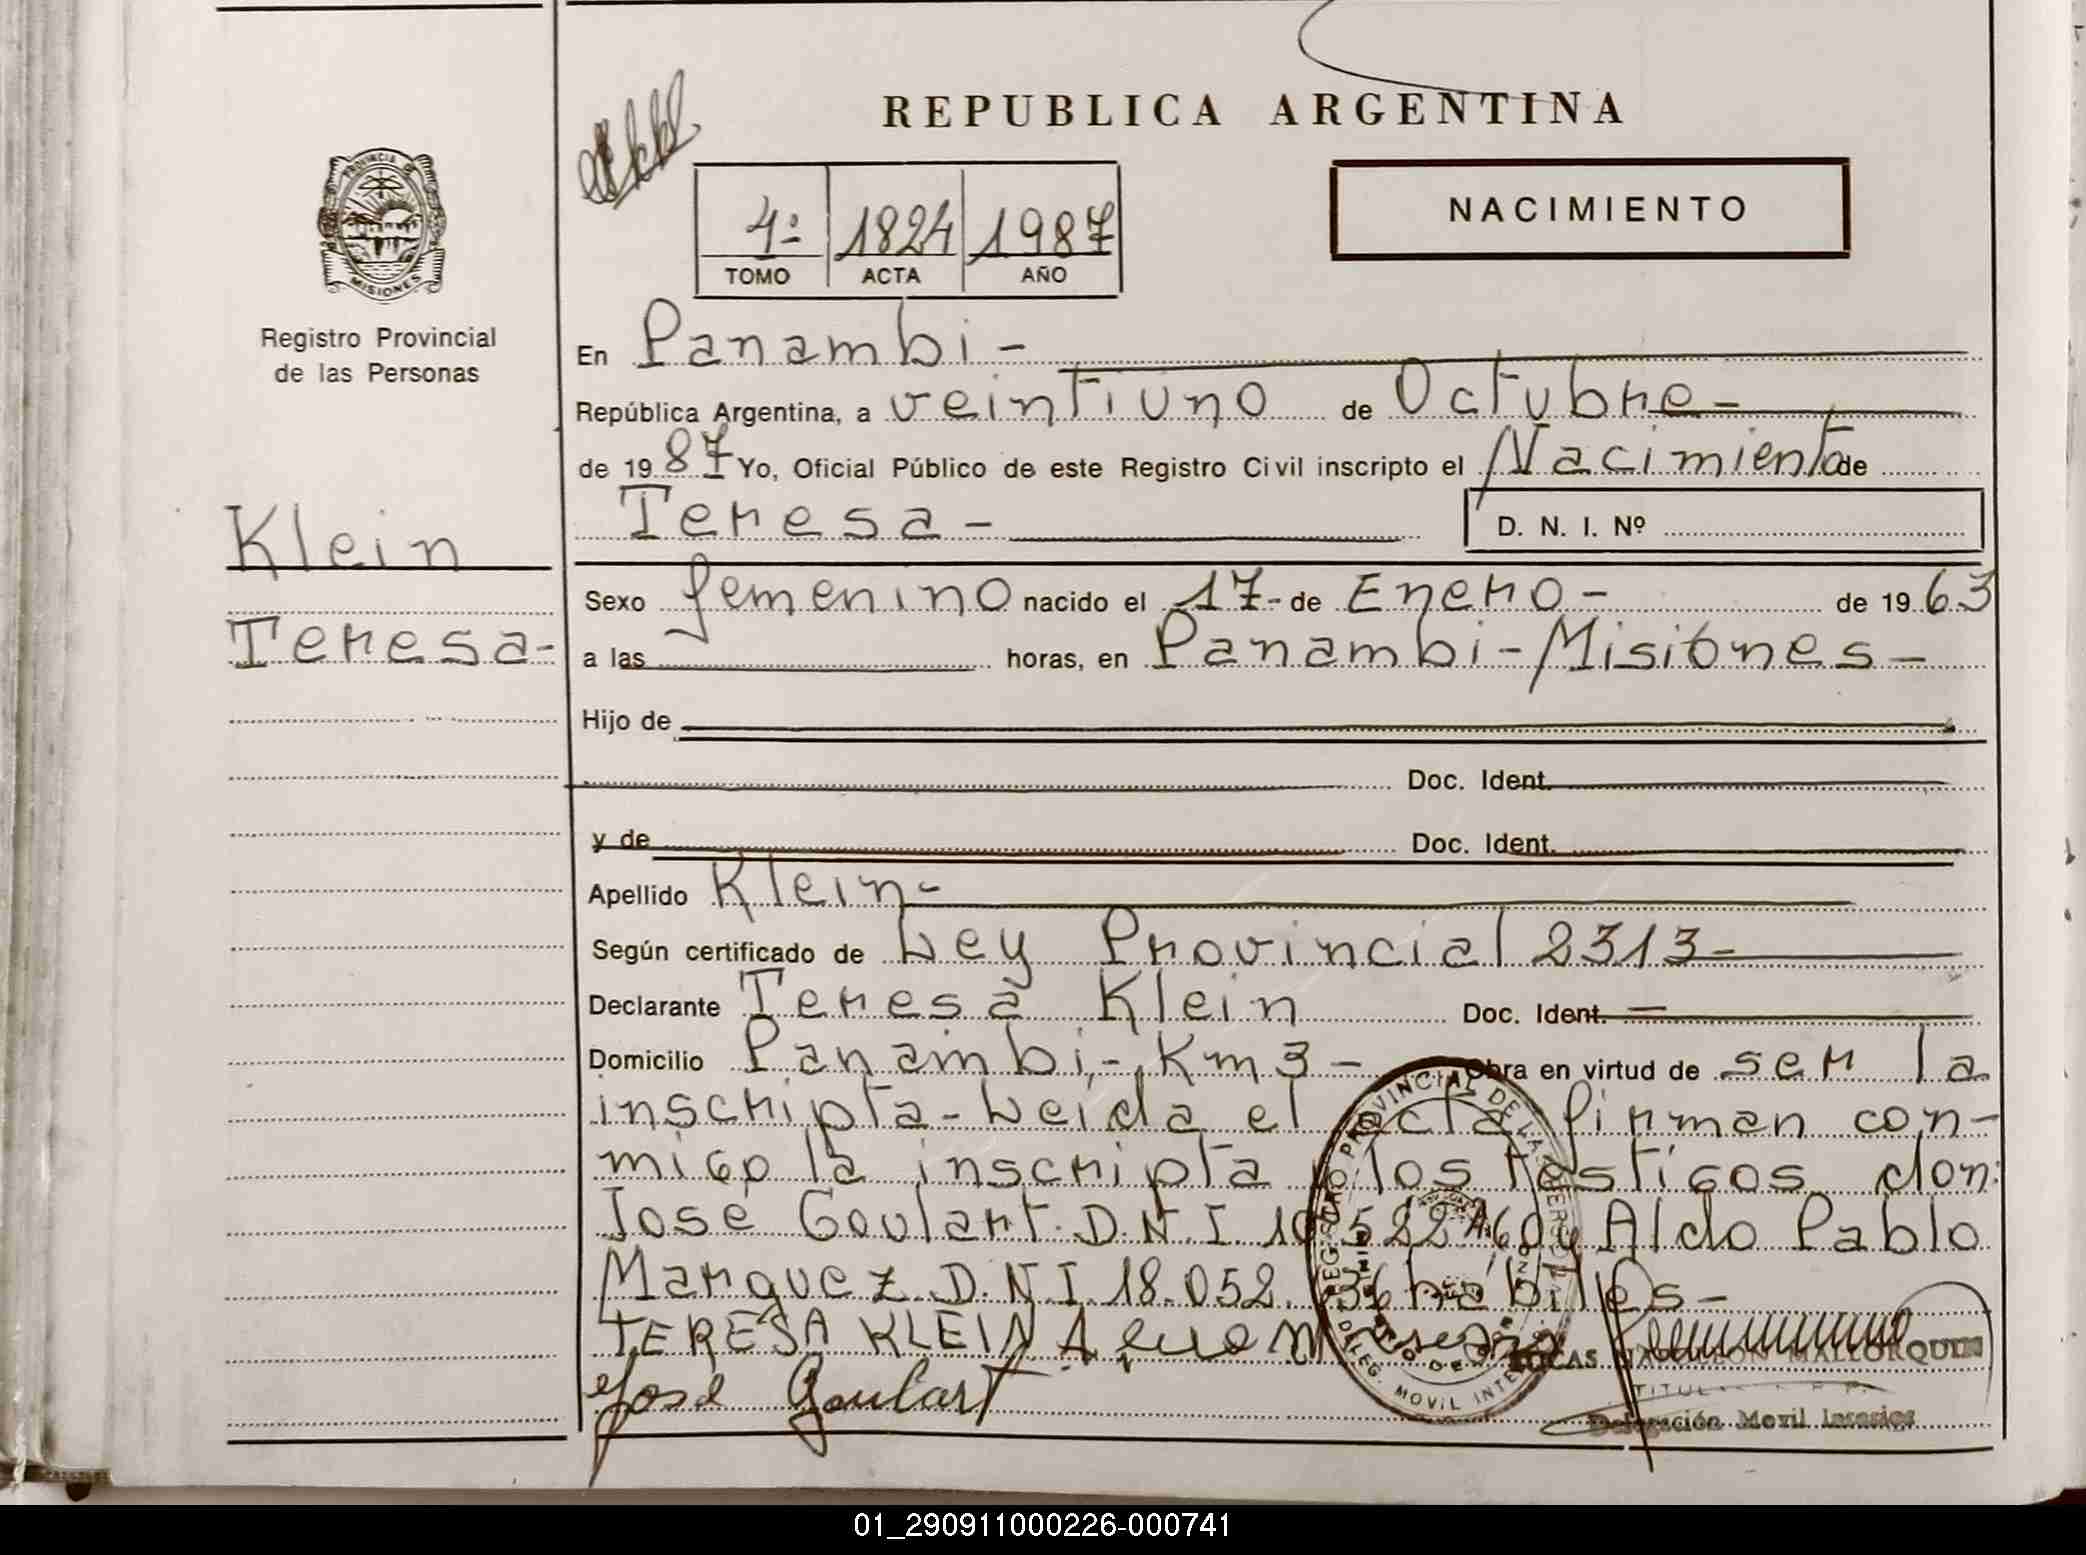 REPUBLICA ARGENTINA
PROVINCIA DE
MISIONES
Registro Provincial
de las Personas
4º 1824 1987
TOMO ACTA AÑO
NACIMIENTO
En Panambi -
República Argentina, a veintiuno de Octubre -
de 1987 Yo, Oficial Público de este Registro Civil inscripto el Nacimiento de
Teresa -
D. N. I. Nº
Klein
Teresa -
Sexo femenino nacido el 17 - de Enero - de 1963
a las horas, en Panambi - Misiones -
Hijo de
Doc. Ident.
y de Doc. Ident.
Apellido Klein -
Según certificado de Ley Provincial 2313 -
Declarante Teresa Klein Doc. Ident. —
Domicilio Panambi, - Km 3 - Obra en virtud de ser la
inscripta - Leida el acta firman con-
migo la inscripta y los testigos don:
Jose Goulart D.N.I 10.522.460 y Aldo Pablo
Marquez D.N.I 18.052. 36 habiles -
TERESA KLEIN
José Goulart
LUCAS NAPOLEON MALLORQUIN
TITULAR
Delegación Movil Interior
REGISTRO PROVINCIAL DE LAS PERSONAS
DELEG. MOVIL INTERIOR
01_290911000226-000741